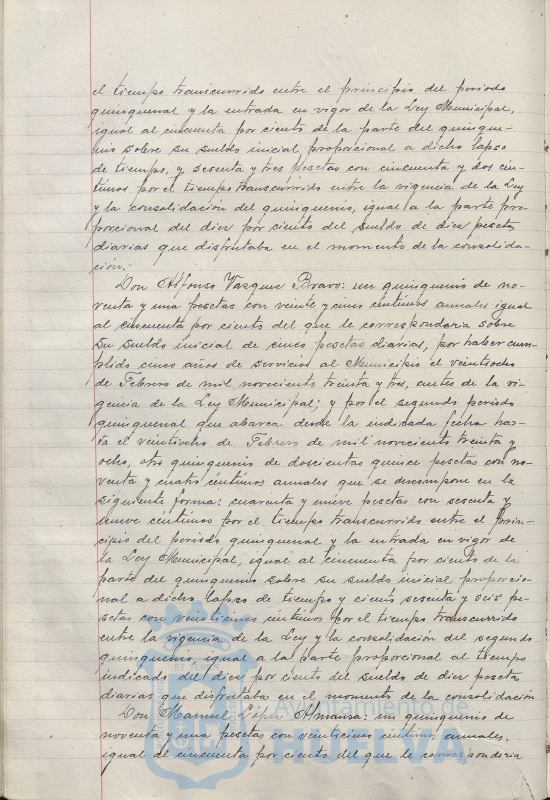 el tiempo transcurrido entre el principio del periodo
quinquenal y la entrada en vigor de la Ley Municipal,
igual al cincuenta por ciento de la parte del quinque-
nio sobre su sueldo inicial proporcional a dicho lapso
de tiempo, y sesenta y tres pesetas con cincuenta y dos cén-
timos por el tiempo transcurrido entre la vigencia de la Ley
y la consolidación del quinquenio, igual a la parte pro-
porcional del diez por ciento del sueldo de diez pesetas
diarias que disfrutaba en el momento de la consolida-
ción.
Don Alfonso Vazquez Bravo: un quinquenio de no-
venta y una pesetas con veinte y cinco céntimos anuales igual
al cincuenta por ciento del que le correspondería sobre
su sueldo inicial de cinco pesetas diarias, por haber cum-
plido cinco años de servicios al Municipio el veintiocho
de Febrero de mil novecientos treinta y tres, antes de la vi-
gencia de la Ley Municipal; y por el segundo periodo
quinquenal que abarca desde la indicada fecha has-
ta el veintiocho de Febrero de mil novecientos treinta y
ocho, otro quinquenio de doscientas quince pesetas con no-
venta y cuatro céntimos anuales que se descompone en la
siguiente forma: cuarenta y nueve pesetas con sesenta y
nueve céntimos por el tiempo transcurrido entre el prin-
cipio del periodo quinquenal y la entrada en vigor de
la Ley Municipal, igual al cincuenta por ciento de la
parte del quinquenio sobre su sueldo inicial proporcio-
nal a dicho lapso de tiempo y ciento sesenta y seis pe-
setas con veinticinco céntimos por el tiempo transcurrido
entre la vigencia de la Ley y la consolidación del segundo
quinquenio, igual a la parte proporcional al tiempo
indicado del diez por ciento del sueldo de diez pesetas
diarias que disfrutaba en el momento de la consolidación
Don Manuel López Almansa: un quinquenio de
noventa y una pesetas con veinticinco céntimos anuales,
igual al cincuenta por ciento del que le correspondería
Ayuntamiento de
HUELVA